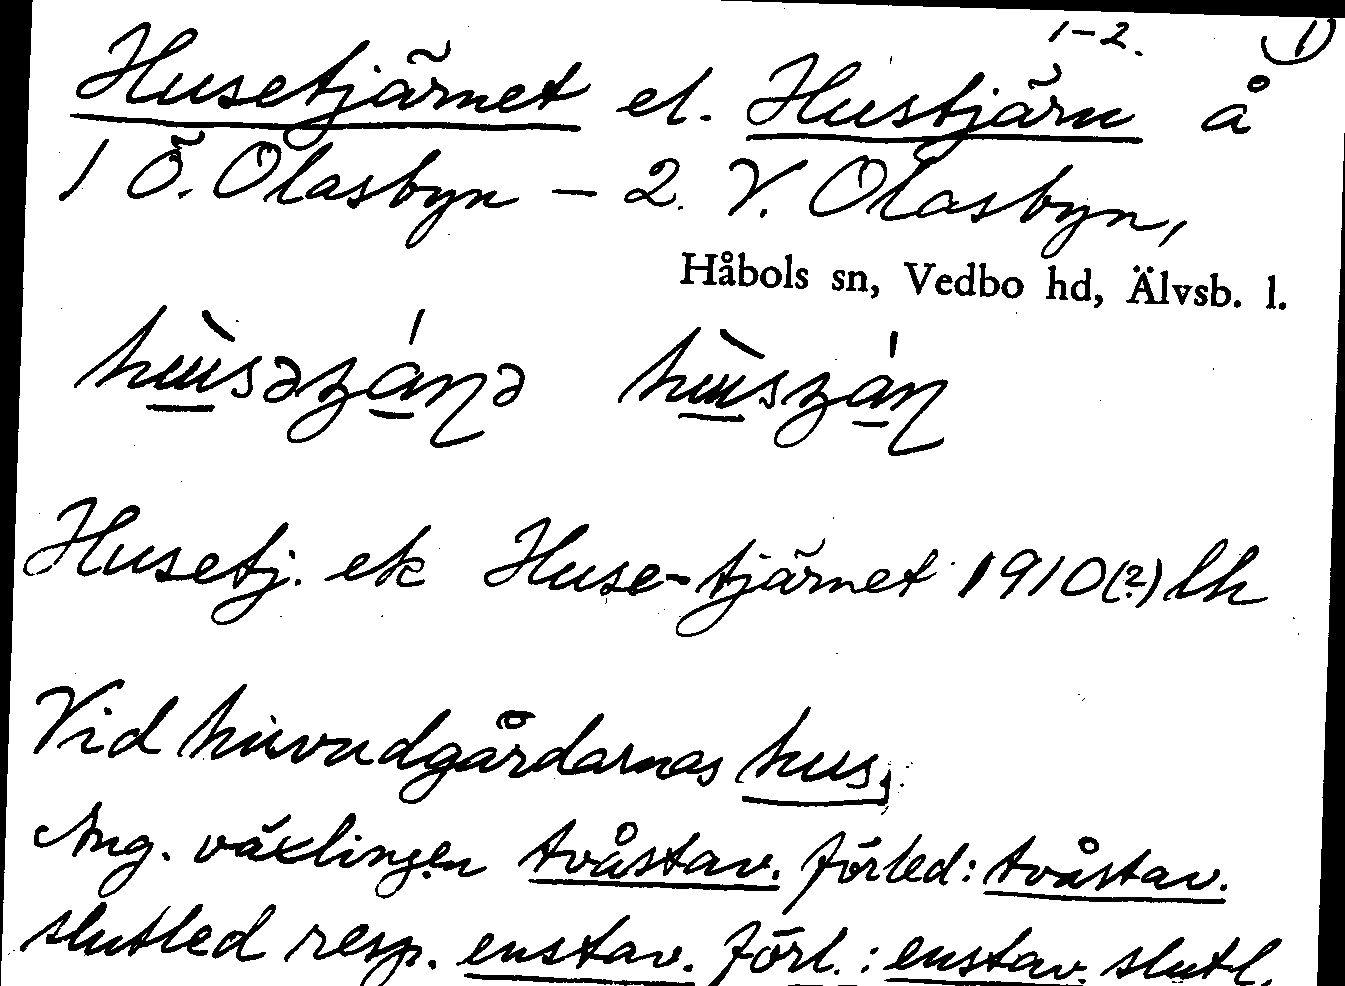 1-2. 1)
Husetjärnet el. Hustjärn å
1 Ö. Olasbyn - 2. V. Olasbyn,
Håbols sn, Vedbo hd, Älvsb. l.
Husetj. ek Huse-tjärnet 1910(?) lh
Vid huvudgårdarnas hus,
Ang. växlingen tvåstav. förled: tvåstav.
slutled resp. enstav. förl.: enstav. slutl.